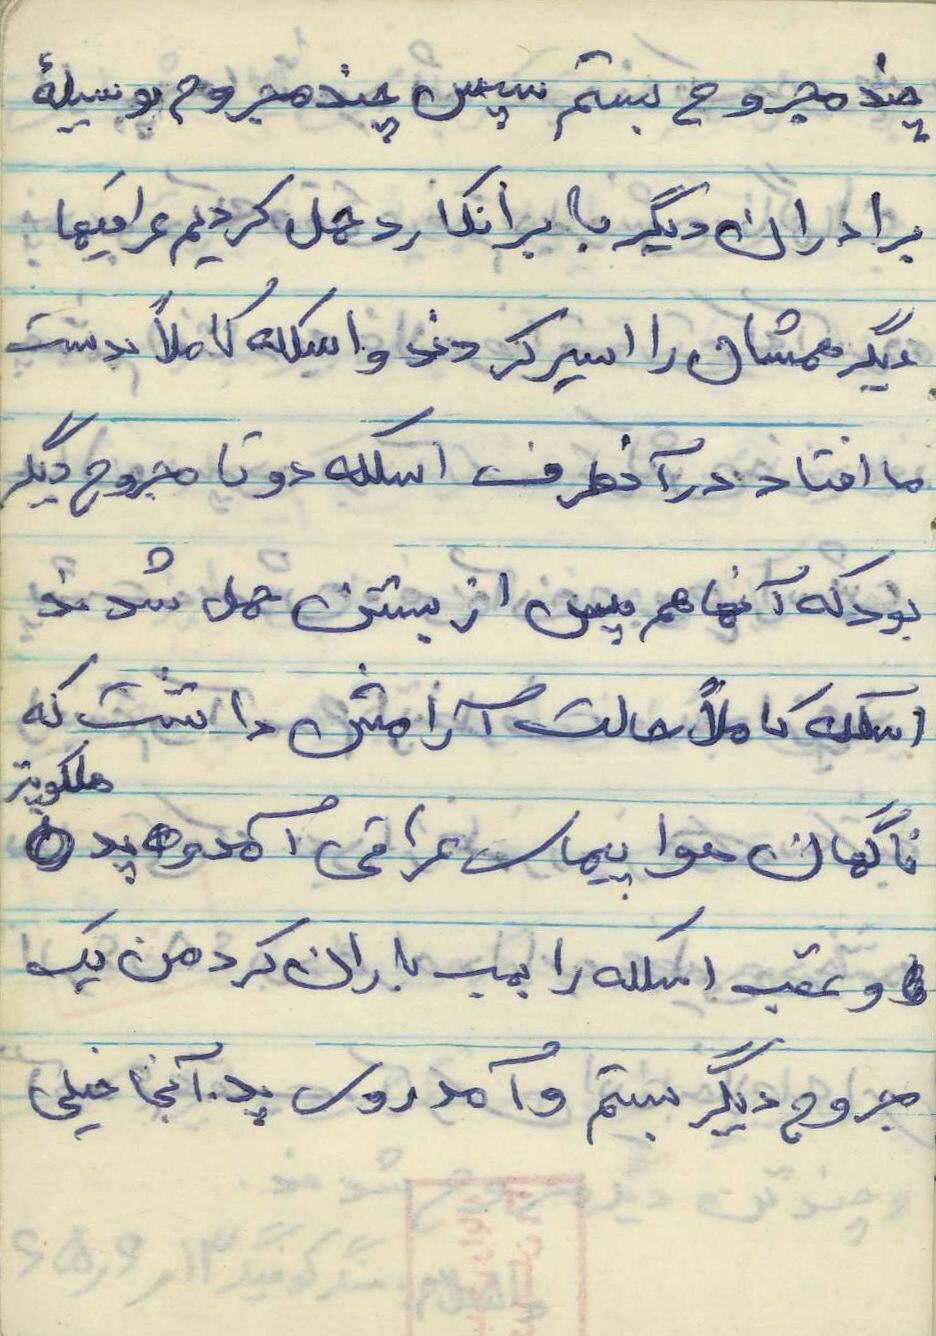 چند مجروح بستم سپس چند مجروح بوسیلهٔ
برادران دیگر با برانکارد حمل کردیم عراقیها
دیگر همشان را اسیر کردند و اسکله کاملاً بدست
ما افتاد در آنطرف اسکله دو تا مجروح دیگر
بود که آنها هم پس از بستن حمل شدند
اسکله کاملاً حالت آرامش داشت که
ناگهان هوا پیمای عراقی آمد و پد هلکوپتر
و عقب اسکله را بمب باران کرد من یک
مجروح دیگر بستم و آمد روی پد. آنجا خیلی